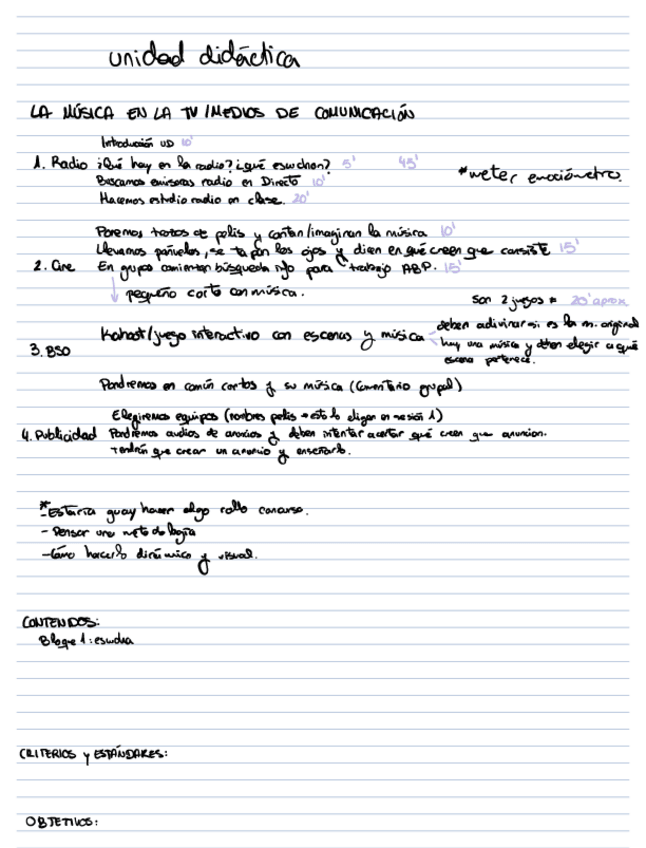 unidad didáctica
LA MÚSICA EN LA TV / MEDIOS DE COMUNICACIÓN
Introducción UD 10'
1. Radio ¿Qué hay en la radio? ¿qué escuchan? 5' 45'
*meter emociómetro.
Buscamos emisoras radio en Directo 10'
Hacemos estudio radio en clase. 20'
Ponemos trozos de pelis y cantan/imaginan la música 10'
Llevamos pañuelos, se tapan los ojos y dicen en qué creen que consiste 15'
2. Cine En grupo comienzan búsqueda info para trabajo ABP. 15'
pequeño corto con música.
Son 2 juegos * 20' aprox
Kahoot/juego interactivo con escenas y música
deben adivinar si es la m. original
hay una música y deben elegir a qué
escena pertenece.
3. BSO
Pondremos en común cortos y su música (comentario grupal)
Elegiremos equipos (nombres pelis → esto lo eligen en sesión 1)
4. Publicidad Pondremos audios de anuncios y deben intentar acertar qué creen que anuncian.
tendrán que crear un anuncio y enseñarlo.
*
- Estaría guay hacer algo rollo concurso.
- Pensar una metodología
- Cómo hacerlo dinámico y visual.
CONTENIDOS:
Bloque 1: escucha
CRITERIOS y ESTÁNDARES:
OBJETIVOS: